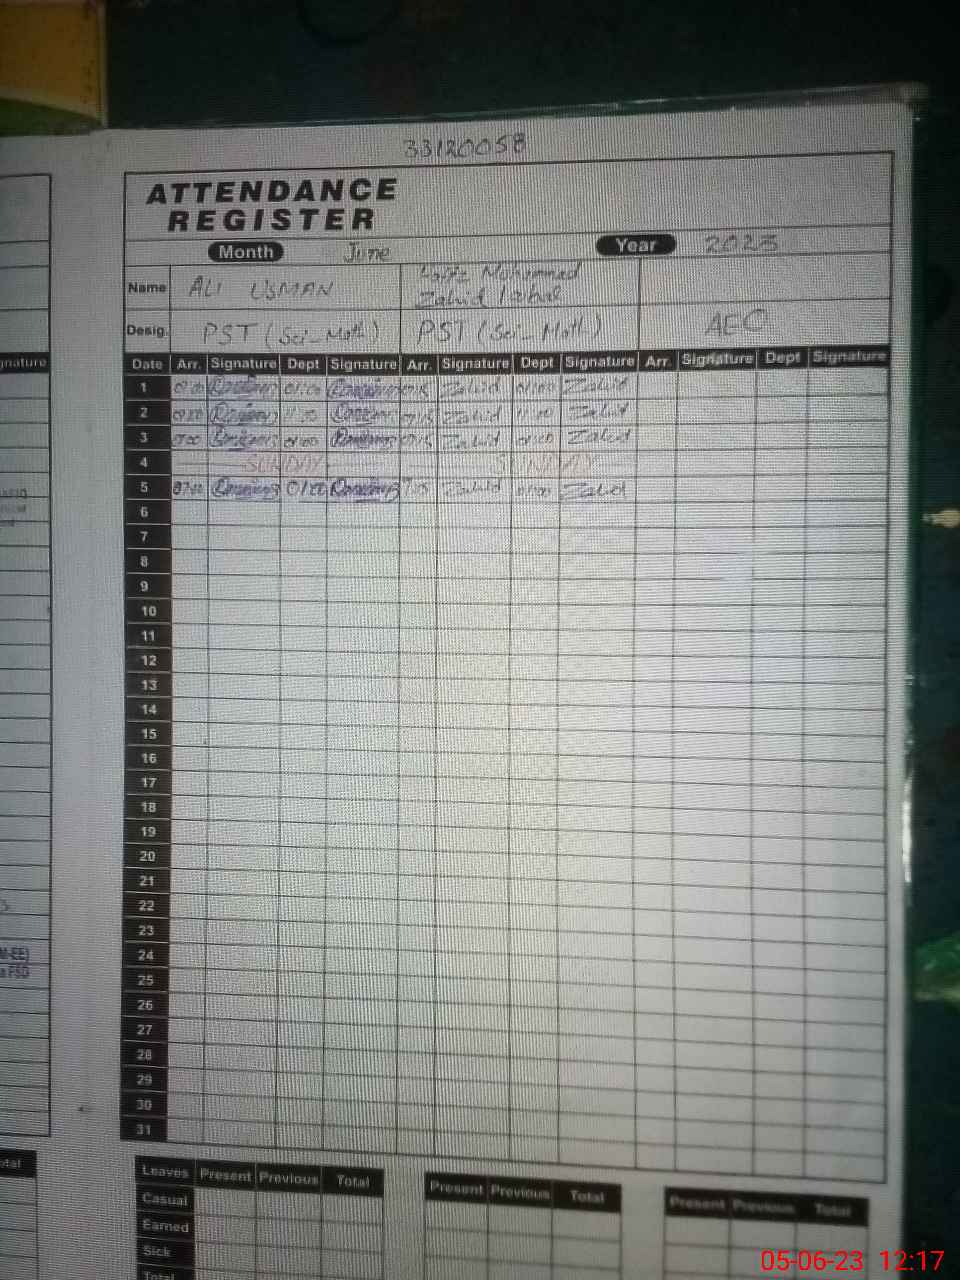 33120058
ATTENDANCE
REGISTER
Month June Year 2023
Name ALI USMAN Hafiz Mohammad
Zahid Iqbal
Desig. PST (Sci_Math) PST (Sci_Math) AEO
gnature
Date Arr. Signature Dept Signature Arr. Signature Dept Signature Arr. Signature Dept Signature
1 07:00 01:00 07:15 Zahid 01:00 Zahid
2 07:00 11:00 07:15 Zahid 11:00 Zahid
3 7:00 01:00 07:15 Zahid 01:00 Zahid
4 SUNDAY SUNDAY
5 07:00 01:00 7:15 Zahid 01:00 Zahid
6
7
8
9
10
11
12
13
14
15
16
17
18
19
20
21
22
23
24
25
26
27
28
29
30
31
M-EE)
a FSD
otal
Leaves Present Previous Total Present Previous Total Present Previous Total
Casual
Earned
Sick
Total
05-06-23 12:17